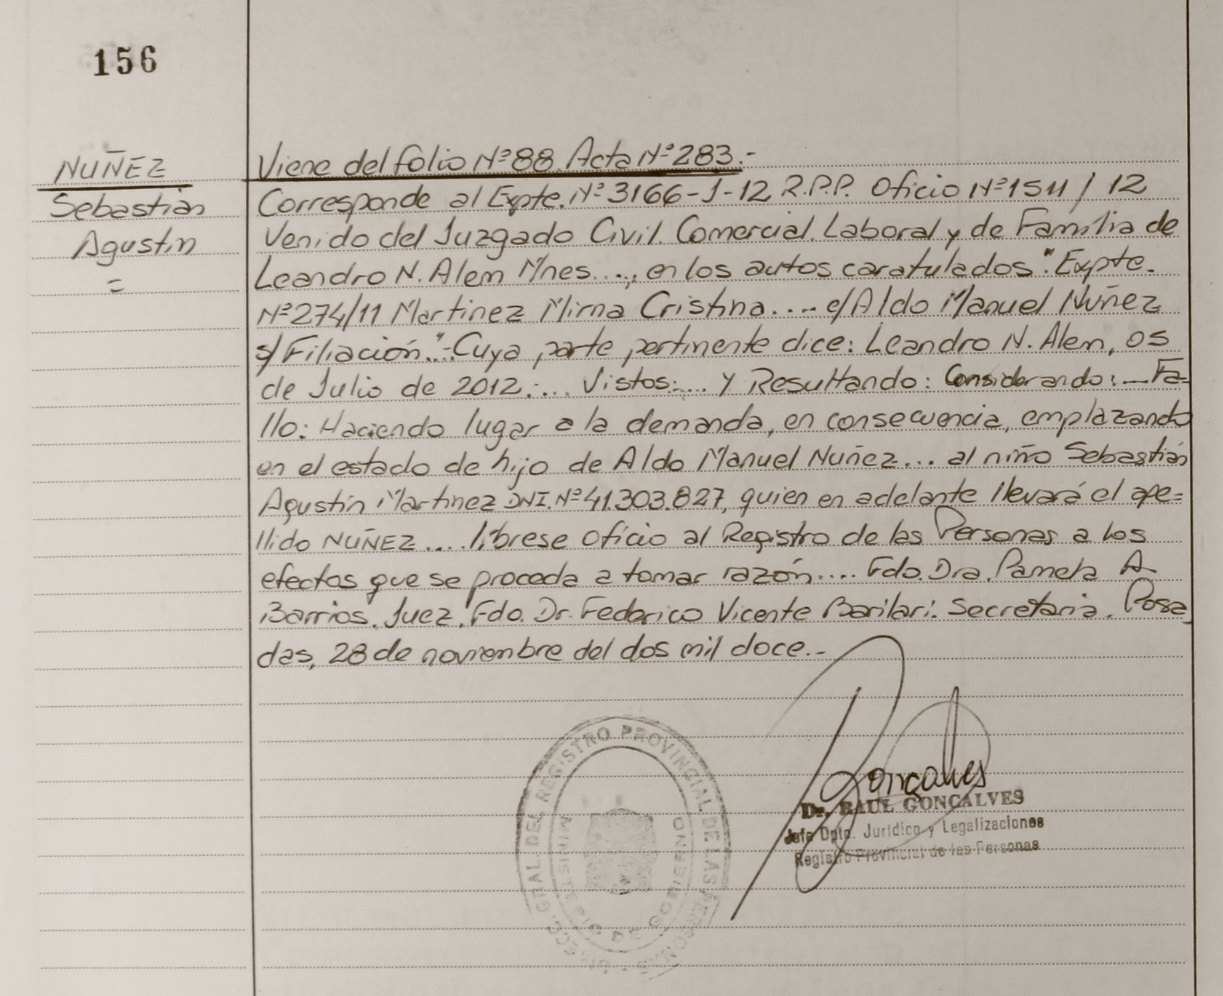 156
NUÑEZ
Sebastián
Agustín
=
Viene del folio Nº 88. Acta Nº 283.-
Corresponde al Expte. Nº 3166-J-12 R.P.P. Oficio Nº 1511/12
Venido del Juzgado Civil. Comercial. Laboral y de Familia de
Leandro N. Alem Mnes...., en los autos caratulados "Expte.
Nº 274/11 Martinez Mirna Cristina.... c/Aldo Manuel Nuñez
s/Filiación".- Cuya parte pertinente dice: Leandro N. Alem, 05
de Julio de 2012:... Vistos:... Y Resultando: Considerando:... Fa-
llo: Haciendo lugar a la demanda, en consecuencia, emplazando
en el estado de hijo de Aldo Manuel Nuñez... al niño Sebastián
Agustín Martinez DNI. Nº 41.303.827, quien en adelante llevará el ape=
llido NUÑEZ.... líbrese oficio al Registro de las Personas a los
efectos que se proceda a tomar razón.... Fdo. Dra. Pamela A
Barrios. Juez. Fdo. Dr. Federico Vicente Barilari. Secretaria. Posa
das, 28 de noviembre del dos mil doce.-
DIRECC. GRAL. DEL REGISTRO PROVINCIAL DE LAS PERSONAS
MINISTERIO DE GOBIERNO
Gonçalves
Dr. RAUL GONÇALVES
Jefe Dpto. Jurídico y Legalizaciones
Registro Provincial de las Personas